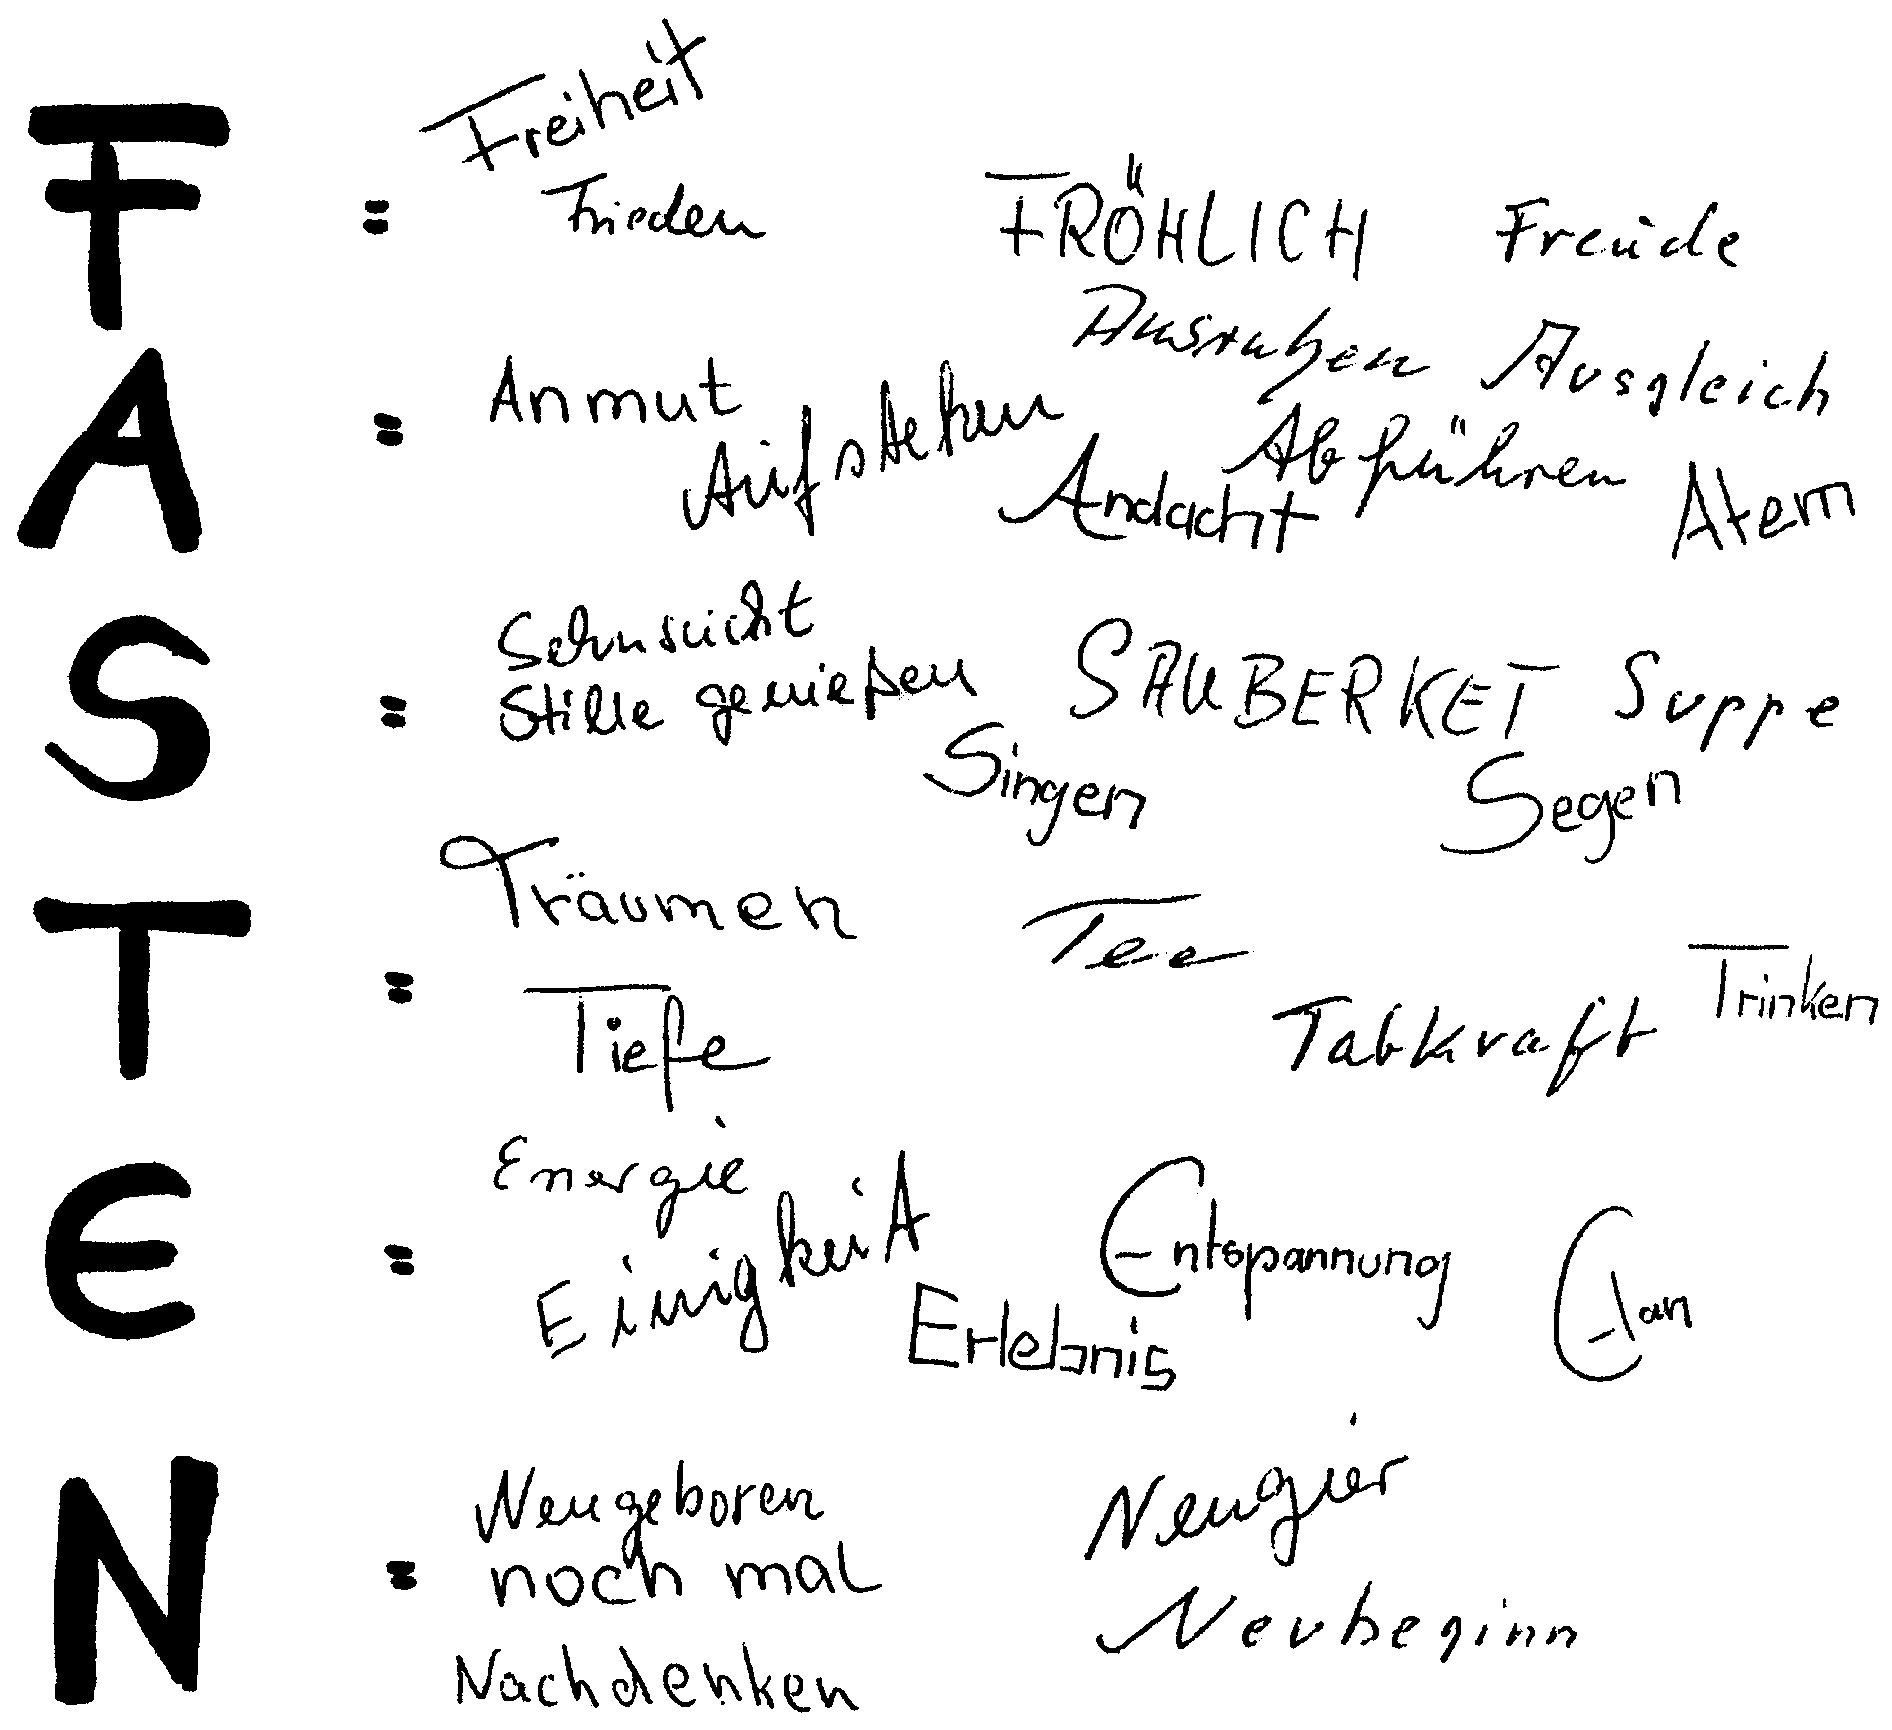 Freiheit
F = Frieden FRÖHLICH Freude
Ausruhen Ausgleich
A = Anmut Aufstehen Abführen
Andacht Atem
Sehnsucht
S = Stille genießen SAUBERKET Suppe
Singen Segen
Träumen Tee
T = Tiefe Tatkraft Trinken
Energie
E = Einigkeit Entspannung Elan
Erlebnis
Neugeboren Neugier
N = noch mal Neubeginn
Nachdenken